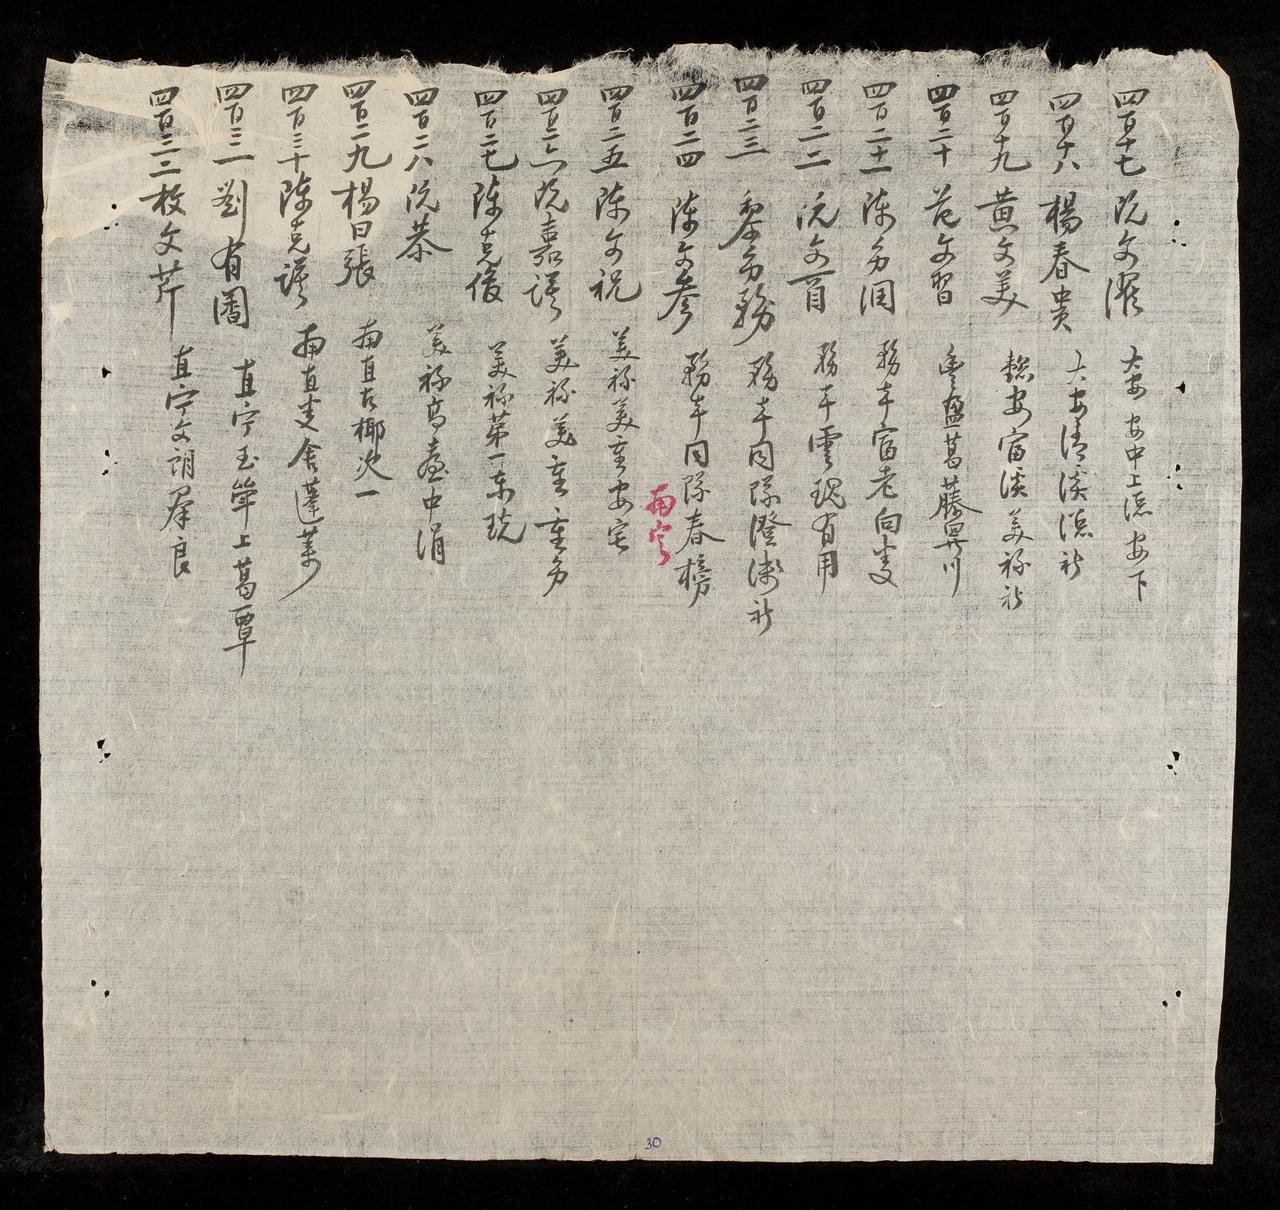 四百十七 阮文濯 大安 安中上 安下
四百十八 楊春貴 大安清溪 社
四百十九 黄文美 懿安富溪美祿社
四百二十 范文習 豊盈葛藤
四百二十一 陳 润 務本富老向
四百二十二 阮文 務本雲瑰有用
四百二十三 黎 務 務本同隊澄 社
四百二十四 陳文参 務本同隊春榜
南定
四百二十五 陳文祝 美祿美重安宅
四百二十六 阮嘉謨 美祿美重重
四百二十七 陳克俊 美祿第一東
四百二十八 阮恭 美祿高臺中涓
四百二十九 楊曰張 南直古椰次一
四百三十 陳克謨 南直 舍蓬萊
四百三一 劉有 直宁 上葛覃
四百三二 枚文芹 直宁文朗羣良
30